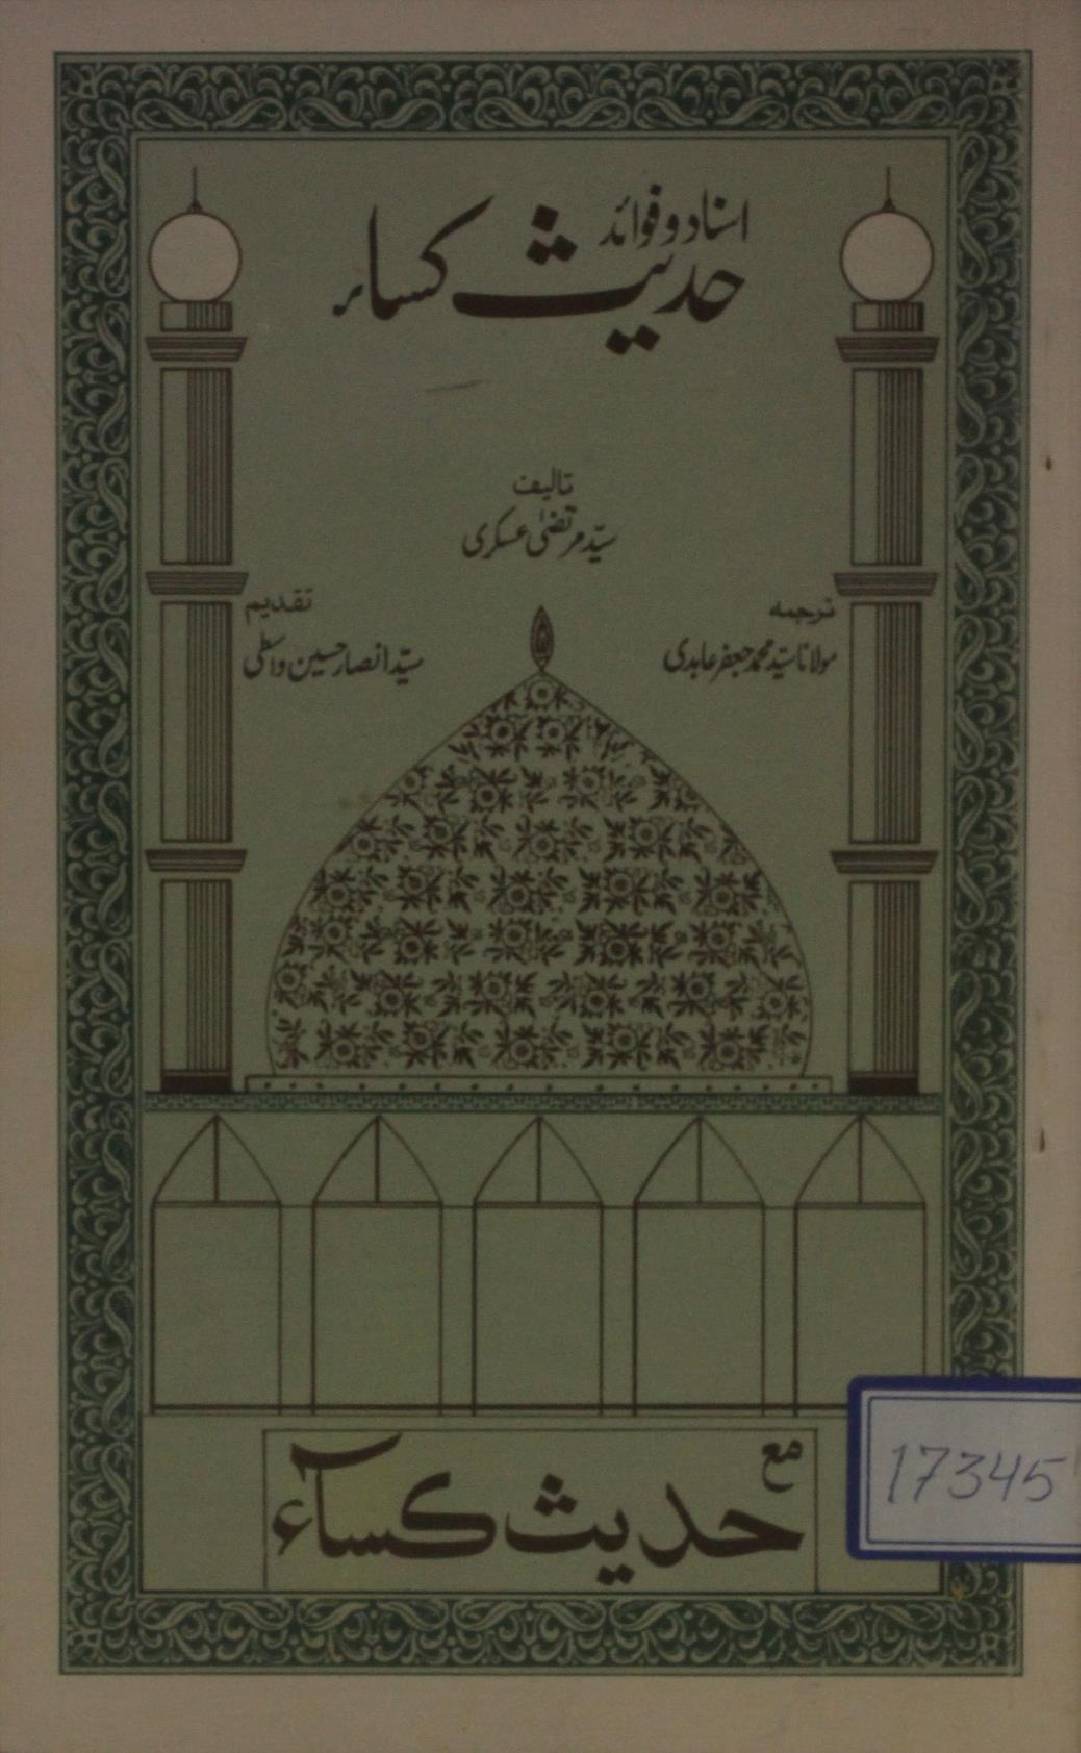 اسناد و فوائد
حدیث کساء
تالیف
سیّد مرتضیٰ عسکری
ترجمہ
مولانا سیّد محمد جعفر عابدی
تقدیم
سیّد انصار حسین واسطی
مع
حدیث کسآء
17345